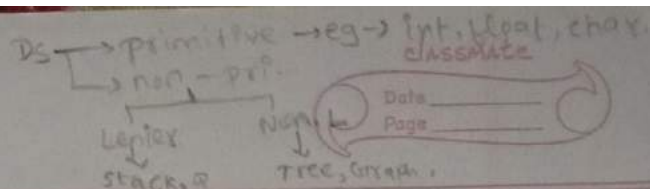 DS → primitive → eg → int, float, char.
classmate
→ non-pri..
Date
Page
Lenier Non-L
Stack, Q Tree, Graph.